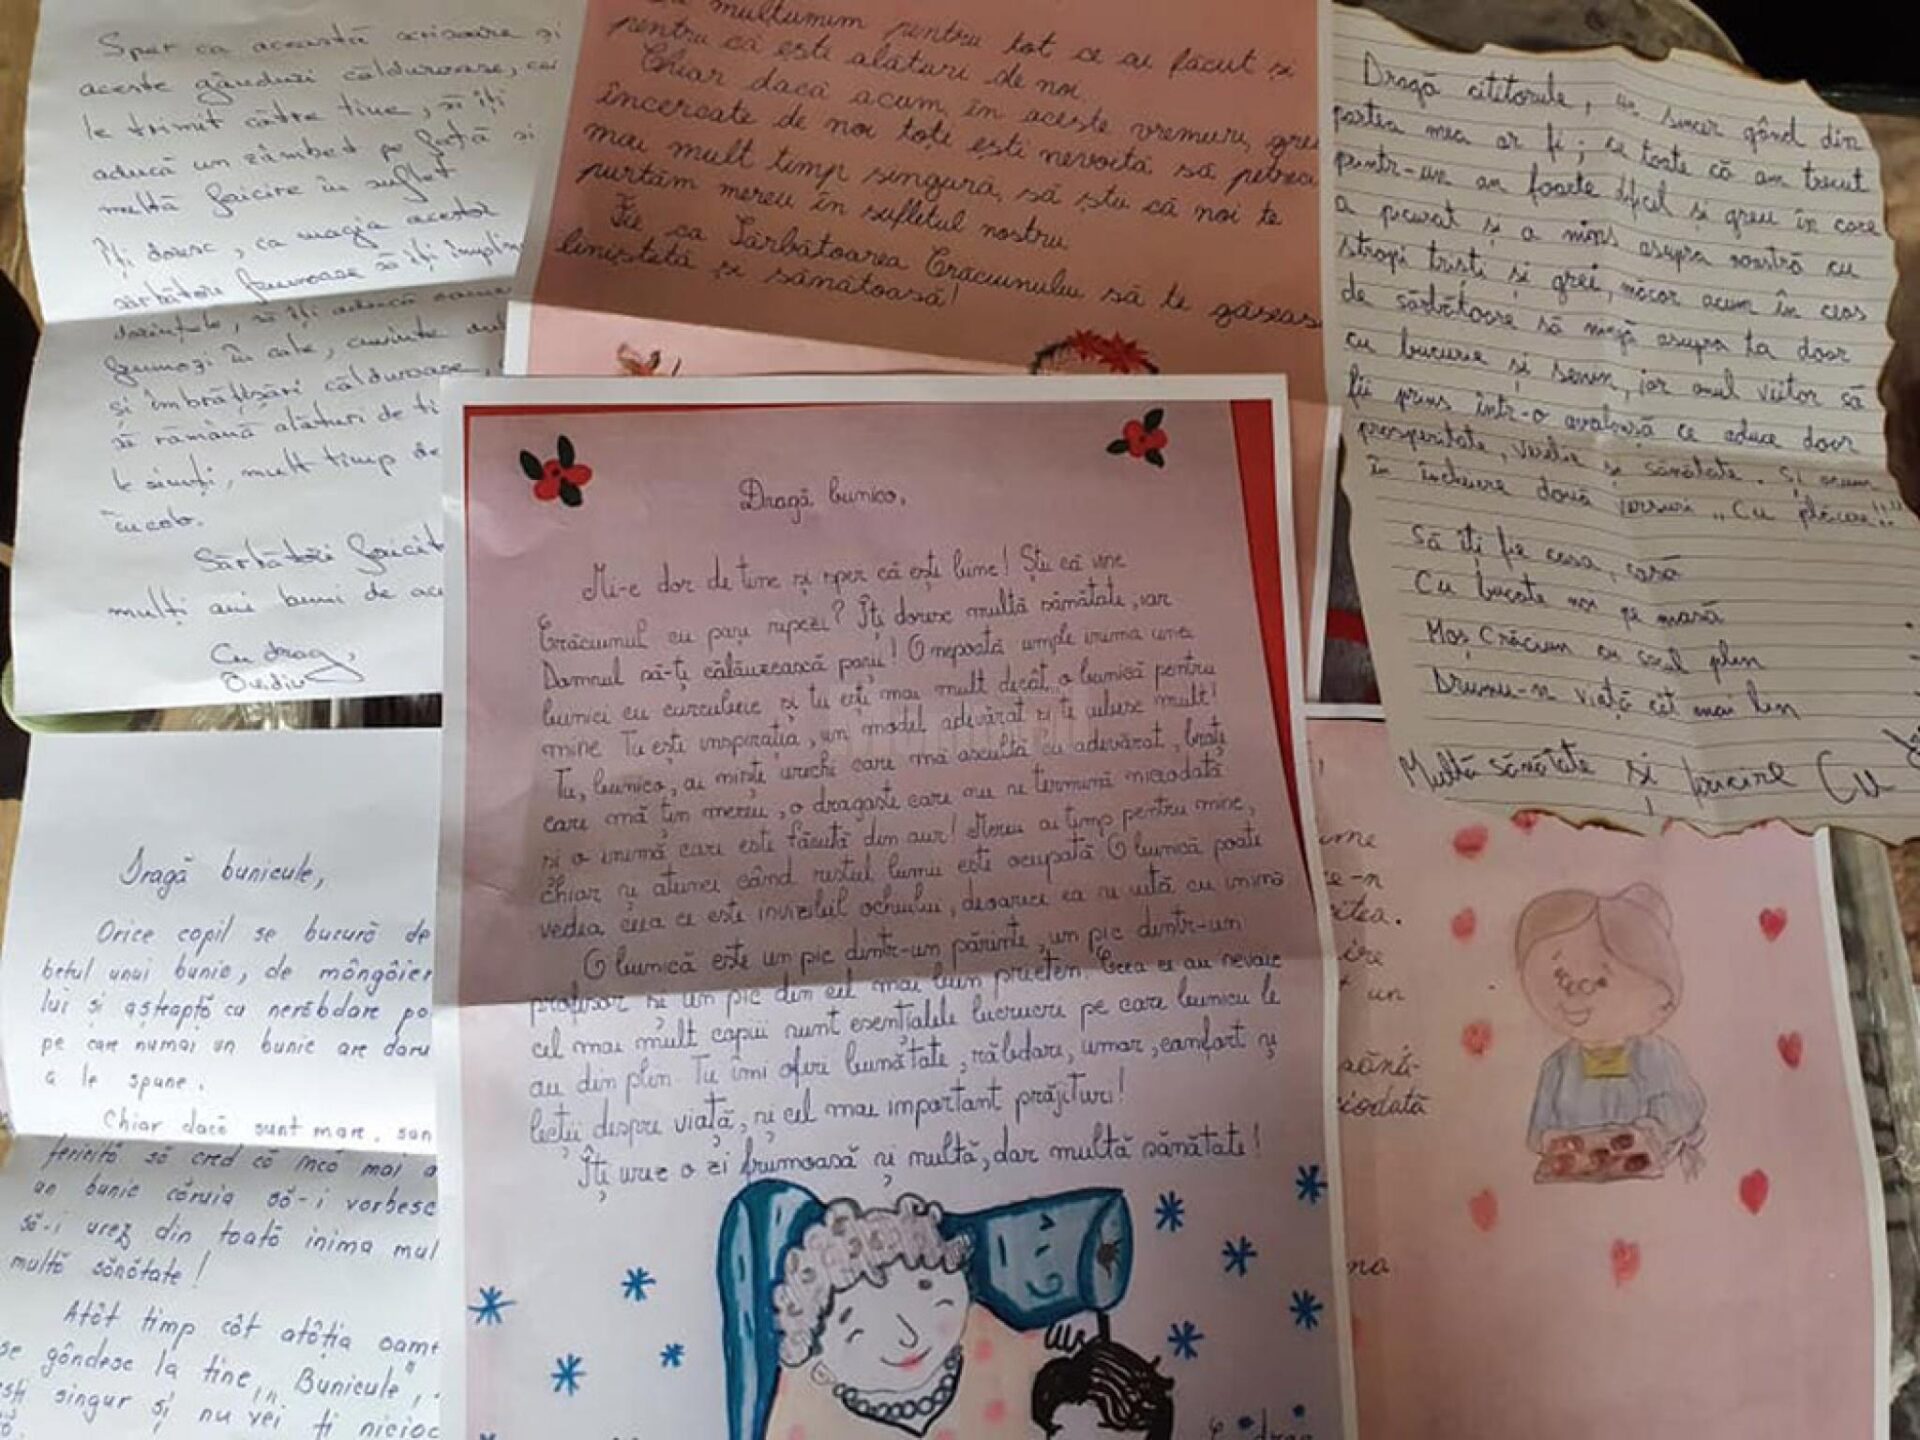 Sper ca această scrisoare și
aceste gânduri călduroase, ce
le trimit către tine, să îți
aducă un zâmbet pe față și
multă fericire în suflet
Îți doresc, ca magia acestor
sărbători frumoase să îți împlin
dorințele, să îți aducă oameni
frumoși în cale, cuvinte
și îmbrățișări călduroase,
să rămână alături de ti
le simți, mult timp de
încolo.
Sărbători fericit
mulți ani buni de ac
Cu drag,
Ovidiu
multumim pentru tot ce ai făcut și
pentru că ești alături de noi.
Chiar dacă acum, în aceste vremuri, gre
încercate de noi toți ești nevoită să petreci
mai mult timp singură, să știi că noi te
purtăm mereu în sufletul nostru
Fie ca Sărbătoarea Crăciunului să te găseas
liniștită și sănătoasă!
Dragă cititorule, un sincer gând din
partea mea ar fi; cu toate că am trecut
printr-un an foarte dificil și greu în care
a picurat și a nins asupra noastră cu
stropi triști și grei, măcar acum în ceas
de sărbătoare să ningă asupra ta doar
cu bucurie și senin, iar anul viitor să
fii prins într-o avalanșă ce aduce doar
prosperitate, veselie și sănătate. Și acum
în încheiere două versuri „Cu plăcere!!"
Să îți fie casa, casă
Cu bucate noi pe masă
Moș Crăciun cu sacul plin
Drumu-n viață cât mai lin
Multă sănătate și fericire Cu
Dragă bunico,
Mi-e dor de tine și sper că ești bine! Știi că vine
Crăciunul cu pași repezi? Îți doresc multă sănătate, iar
Domnul să-ți călăuzească pașii! O nepoată umple inima unei
bunici cu curcubeie și tu ești mai mult decât o bunică pentru
mine. Tu ești inspirația, un model adevărat și te iubesc mult!
Tu, bunico, ai niște urechi care mă ascultă cu adevărat, brațe
care mă țin mereu, o dragoste care nu se termină niciodată
și o inimă care este făcută din aur! Mereu ai timp pentru mine,
chiar și atunci când restul lumii este ocupată. O bunică poate
vedea ceea ce este invizibil ochiului, deoarece ea se uită cu inima
O bunică este un pic dintr-un părinte, un pic dintr-un
profesor și un pic din cel mai bun prieten. Ceea ce au nevoie
cel mai mult copiii sunt esențialele lucruri pe care bunicii le
au din plin. Tu îmi oferi bunătate, răbdare, umor, confort și
lecții despre viață, și cel mai important prăjituri!
Îți urez o zi frumoasă și multă, dar multă sănătate!
Dragă bunicule,
Orice copil se bucură de
betul unui bunic, de mângâier
lui și așteaptă cu nerăbdare po
pe care numai un bunic are daru
a le spune.
Chiar dacă sunt mare, sun
fericită să cred că încă mai a
un bunic căruia să-i vorbesc
să-i urez din toată inima mul
multă sănătate!
Atât timp cât atâția oame
se gândesc la tine, „Bunicule",
ești singur și nu vei fi nicioc
ime
e-n
itea.
ire
un
sănă-
ciodată
na
drag